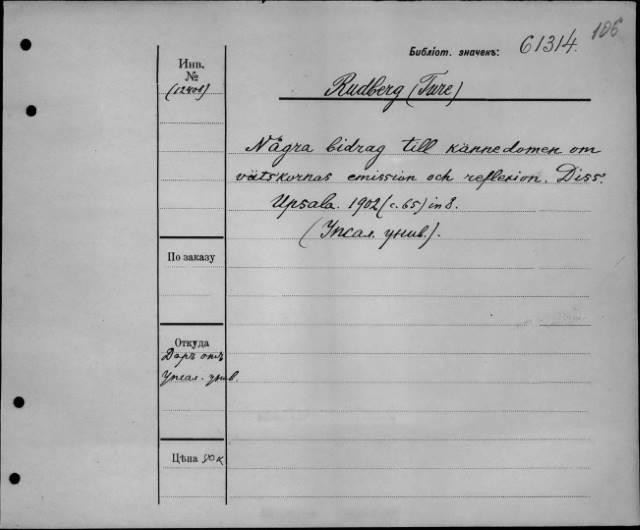 106
Библіот. значекъ: 61314.
Инв.
№
(12408)
Rudberg (Ture)
Några bidrag till kännedomen om
vätskornas emission och reflexion. Diss.
Upsala. 1902 (c. 65) in 8.
(Упсал. унив.).
По заказу
Откуда
Даръ отъ
Упсал. унив.
Цѣна 80 к